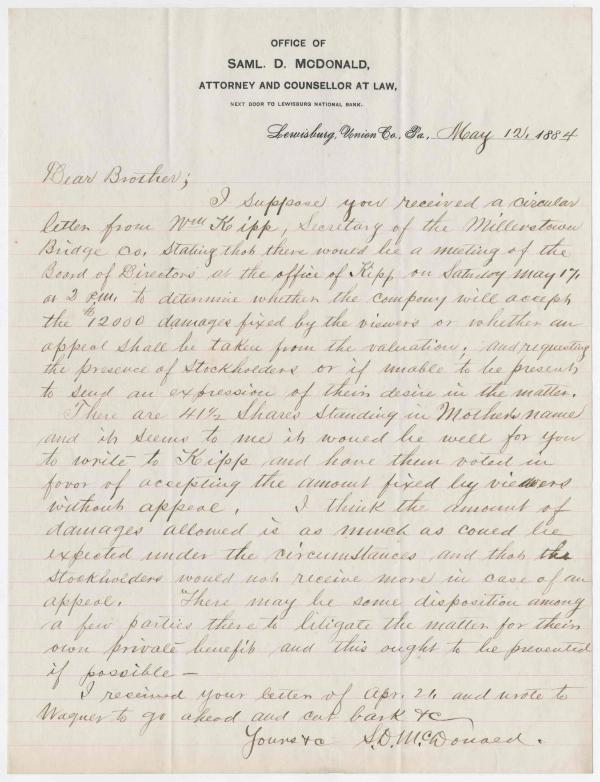 OFFICE OF
SAML. D. McDONALD,
ATTORNEY AND COUNSELLOR AT LAW,
NEXT DOOR TO LEWISBURG NATIONAL BANK.
Lewisburg, Union Co., Pa., May 12, 1884
Dear Brother;
I suppose you received a circular
letter from Wm Kipp, Secretary of the Millerstown
Bridge Co. stating that there would be a meeting of the
Board of Directors at the office of Kipp on Saturday May 17,
at 2 P.M. to determine whether the company will accept
the $12000 damages fixed by the viewers or whether an
appeal shall be taken from the valuation, and requesting
the presence of Stockholders or if unable to be present
to send an expression of their desire in the matter.
There are 41½ Shares Standing in Mother's name
and it seems to me it would be well for you
to write to Kipp and have them voted in
favor of accepting the amount fixed by viewers
without appeal. I think the amount of
damages allowed is as much as could be
expected under the circumstances and that the
Stockholders would not receive more in case of an
appeal. There may be some disposition among
a few parties there to litigate the matter for their
own private benefit and this ought to be prevented
if possible —
I received your letter of Apr. 26 and wrote to
Wagner to go ahead and cut bark &c
Yours &c S.D. McDonald.